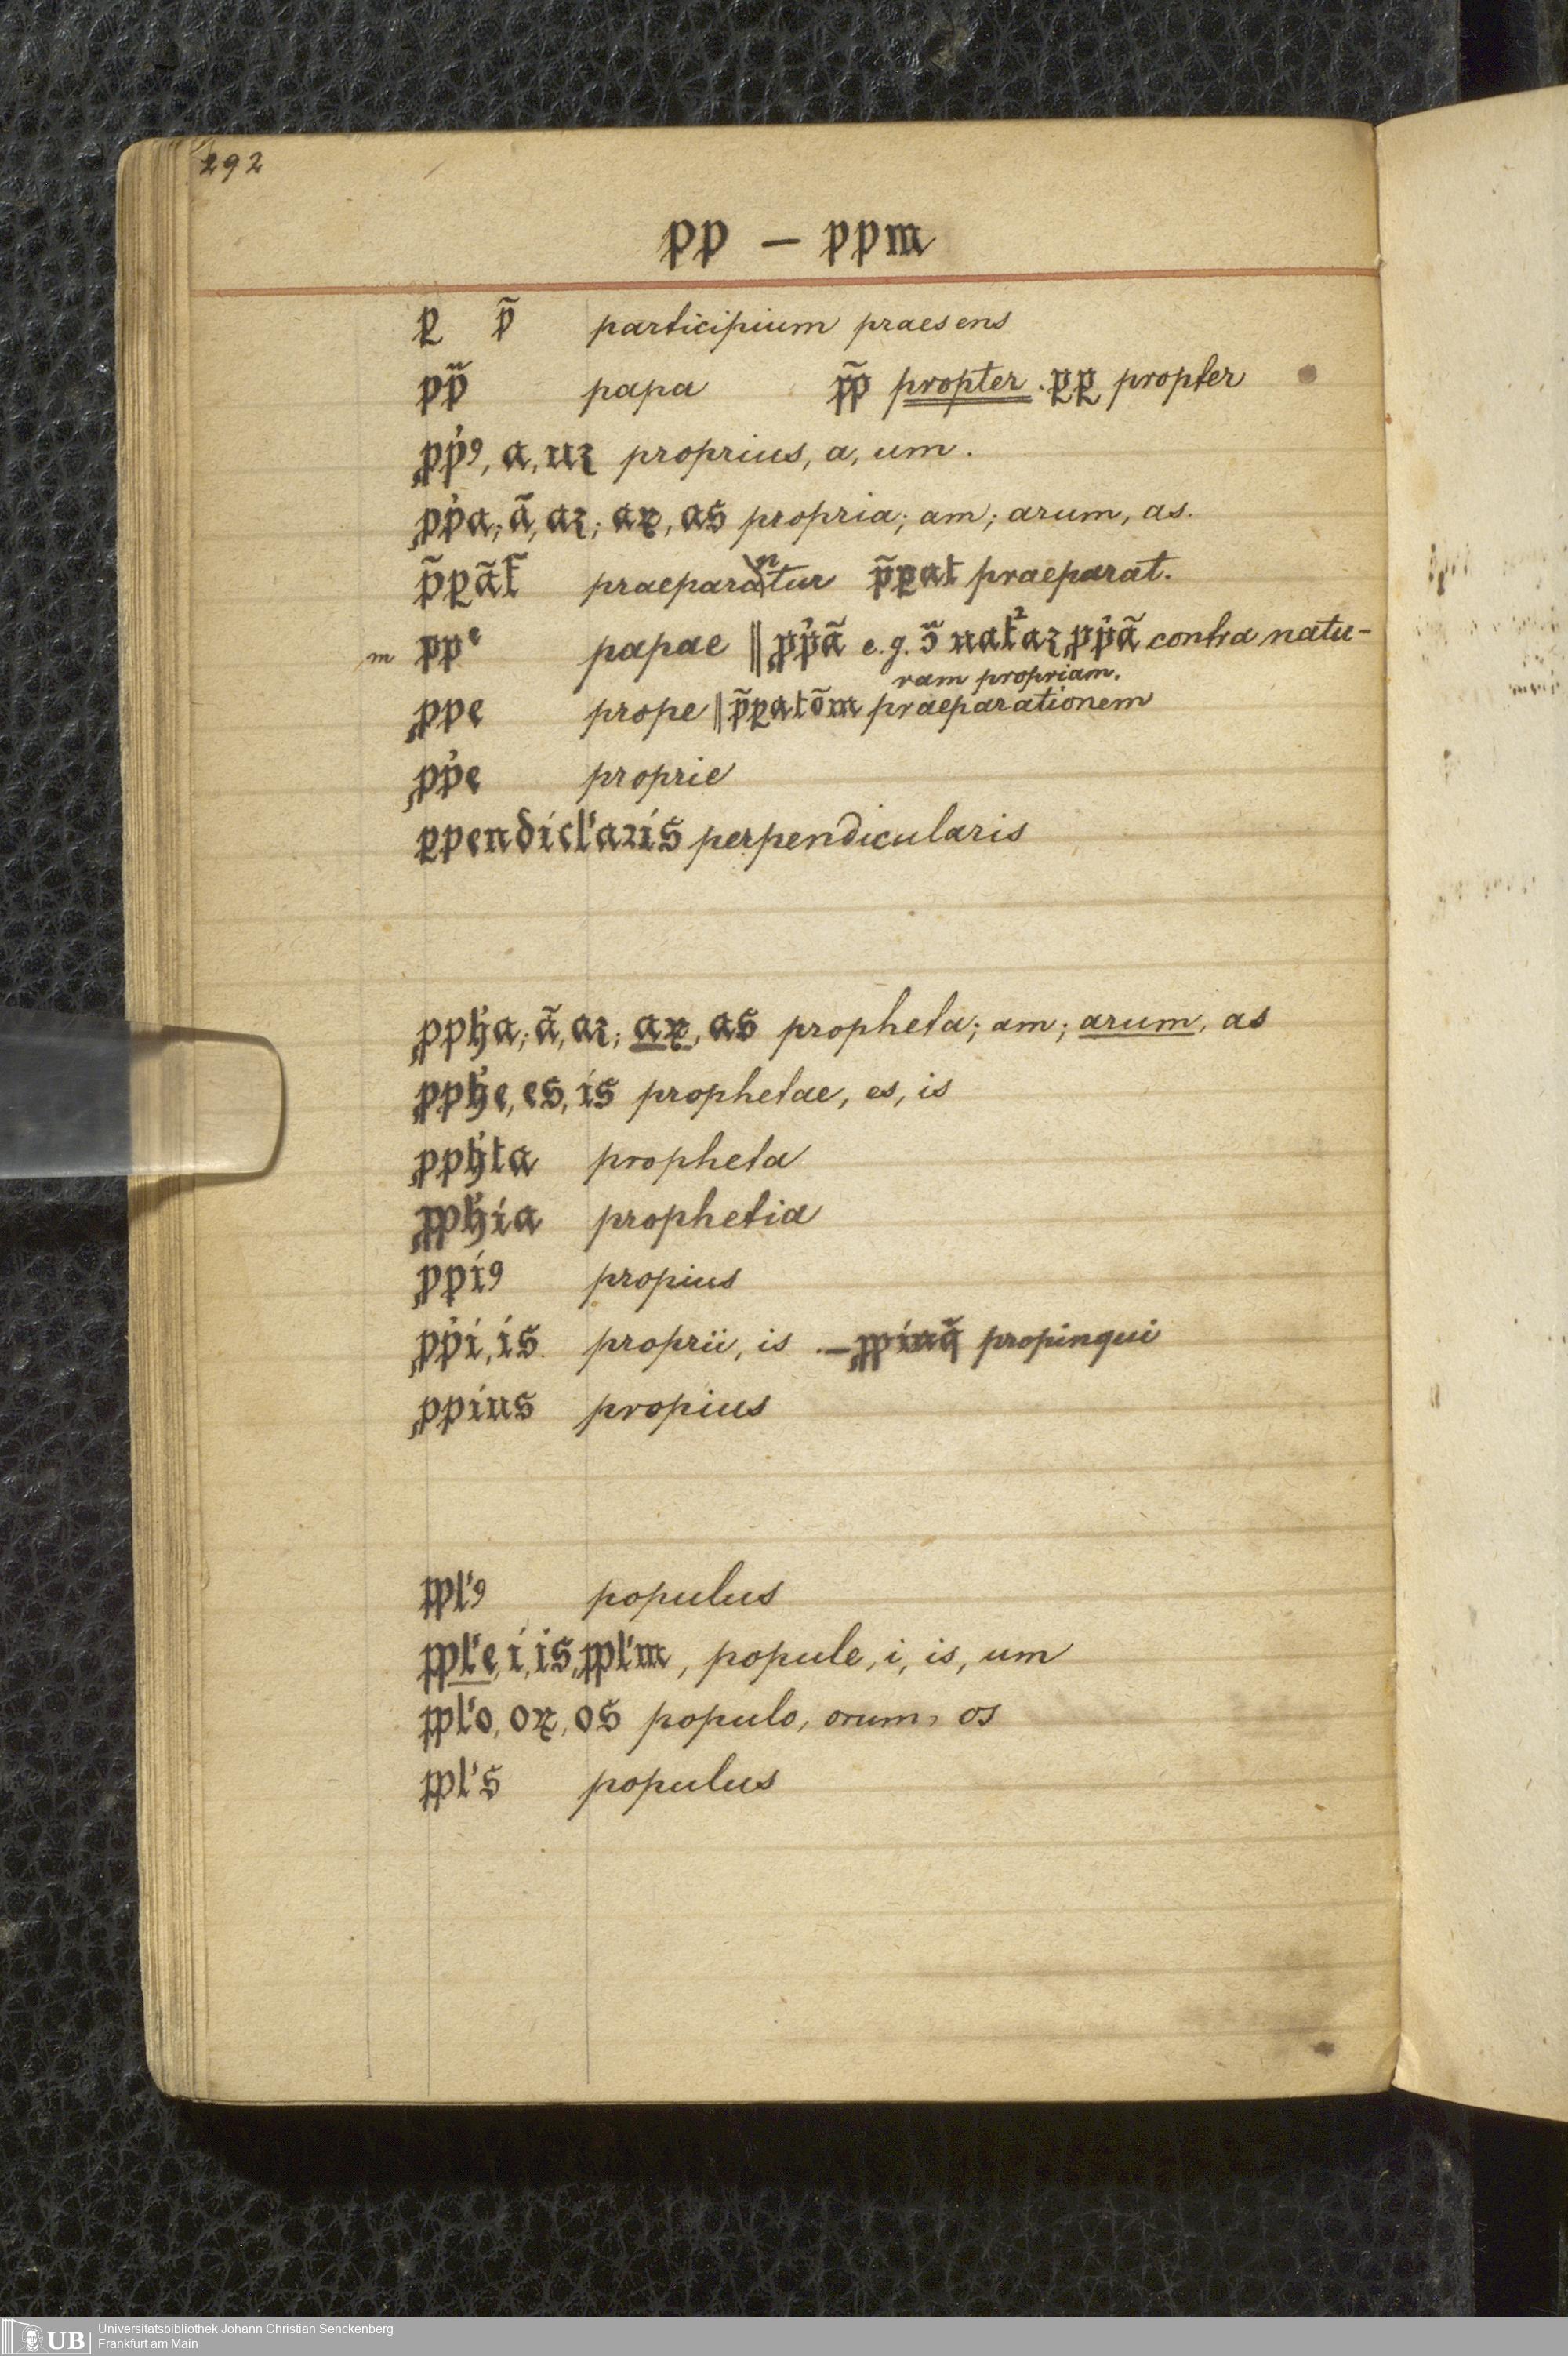 292
pp — ppm
ꝑ p̃ participium praesens
pp̃ papa p̃p propter. ꝑꝑ propter
ꝓp̓ꝰ, a, uꝫ proprius, a, um.
ꝓp̓a; ã, aꝫ; aꝝ, as propria; am; arum, as.
p̃ꝑãt̃ praeparantur p̃ꝑat praeparat.
m ppᵉ papae || ꝓp̓ã e.g. ↄ̃ nat²aꝫ ꝓp̓ã contra natu-
ram propriam.
ꝓpe prope || p̃ꝑatõm praeparationem
ꝓp̓e proprie
ꝑpendicl̓aris perpendicularis
ꝓph̓a; ã, aꝫ; aꝝ, as propheta; am; arum, as
ꝓph̓e, es, is prophetae, es, is
ꝓph̓ta propheta
ꝓph̓ia prophetia
ꝓpiꝰ propius
ꝓp̓i, is. proprii, is .— ꝓpinq̃ propinqui
ꝓpius propius
ppl̓ꝰ populus
ppl̓e, i, is, ppl̓m, popule, i, is, um
ppl̓o, oꝝ, os populo, orum, os
ppl̓s populus
UB Universitätsbibliothek Johann Christian Senckenberg
Frankfurt am Main